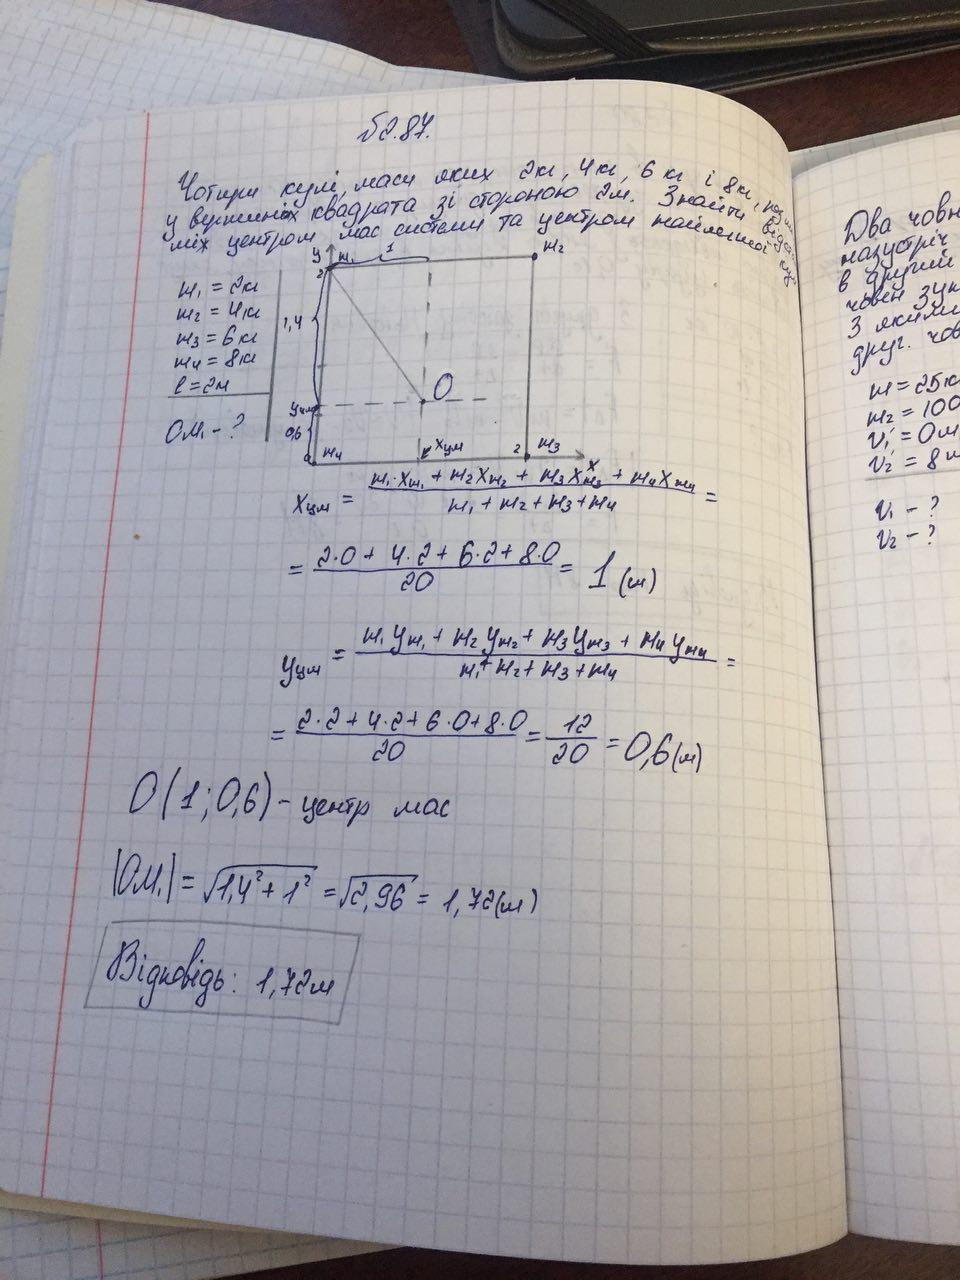 Б2.87.
Чотири кулі, маси яких 2кг, 4кг, 6 кг і 8кг,
у вершинах квадрата зі стороною 2м. Знайти
між центром мас системи та центром найменшої
m₁ = 2кг
m₂ = 4кг
m₃ = 6кг
m₄ = 8кг
l = 2м
OM₁ - ?
y
2
m₁
1
m₂
1,4
O
yцм
0,6
0
m₄
xцм
2
m₃
x
xцм = (m₁·xm₁ + m₂xm₂ + m₃xm₃ + m₄xm₄)/(m₁ + m₂ + m₃ + m₄) =
= (2·0 + 4·2 + 6·2 + 8·0)/20 = 1 (м)
yцм = (m₁ym₁ + m₂ym₂ + m₃ym₃ + m₄ym₄)/(m₁ + m₂ + m₃ + m₄) =
= (2·2 + 4·2 + 6·0 + 8·0)/20 = 12/20 = 0,6(м)
O(1; 0,6) - центр мас
|OM₁| = √(1,4² + 1²) = √2,96 = 1,72(м)
Відповідь: 1,72м
Два човн
назустріч
в другий
човен зуп
З якими
друг. чов
m = 25к
m₂ = 100
v₁' = 0м
v₂' = 8м
v₁ - ?
v₂ - ?